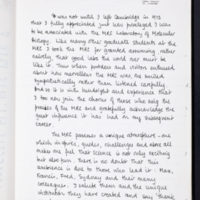 It was not until I left Cambridge in 1973
that I fully appreciated just how privileged I was to
be associated with the MRC Laboratory of Molecular
Biology. Like many other graduate students at the
MRC I took the MRC for granted assuming rather
naively that good labs the world over must be
like it. Thus when postdocs and visitors enthused
about how marvellous the MRC was, we smiled
sympathetically rather than listened carefully
And so it is with hindsight and experience that
I too now join the chorus of those who sing the
praises of the MRC and gratefully acknowledge the
great influence it has had in my subsequent
career.
The MRC possesses a unique atmosphere - one
which inspires, guides, challenges and above all
makes one feel that science is not only exciting
but also fun. There is no doubt that this
ambience is due to those who lead it - Max,
Francis, Fred, Sydney and their many
colleagues. I salute them and the unique
they have created and say thank